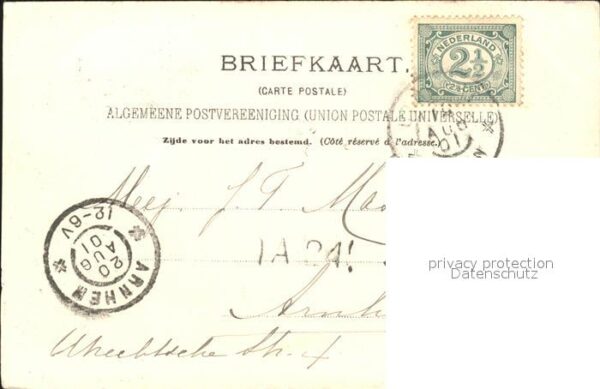 NEDERLAND
2½
2½ CENT
BRIEFKAART.
(CARTE POSTALE)
ALGEMEENE POSTVEREENIGING (UNION POSTALE UNIVERSELLE)
Zijde voor het adres bestemd. (Côté réservé à l'adresse.)
AUG
01
Mej. J. F.
ARNHEM
12-6V
20
AUG
01
1A 24!
privacy protection
Datenschutz
Utrechtsche Str. 4